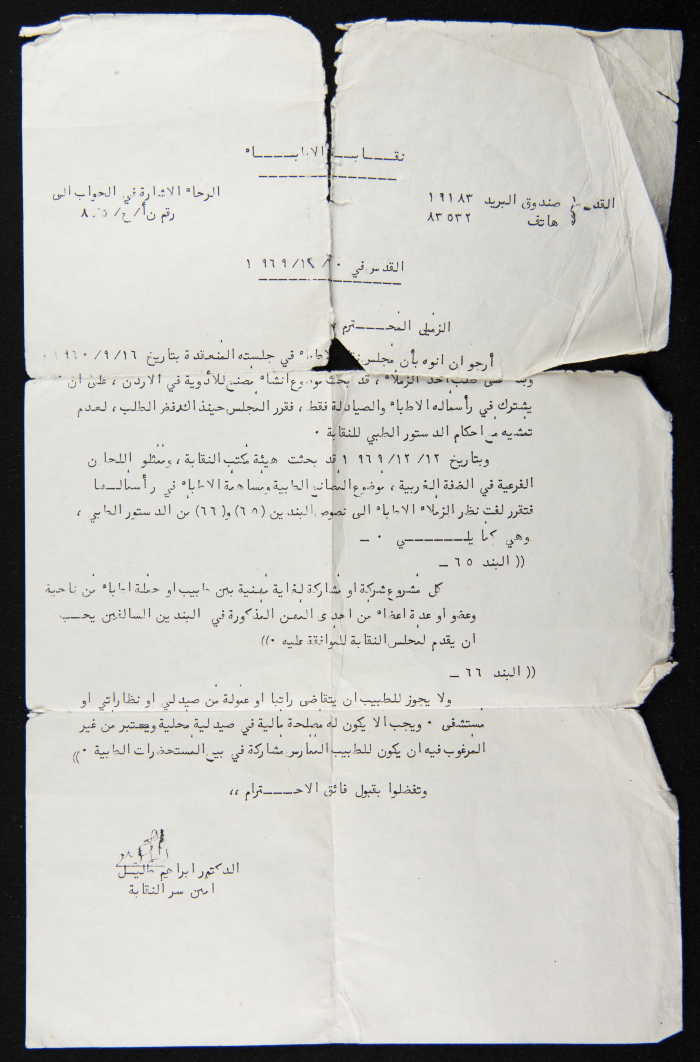 نقـــابـــة الاطبـــاء
القدس صندوق البريد ١٩١٨٣
هاتف ٨٣٥٣٢
الرجاء الاشارة في الجواب الى
رقم ن أ/ ع/
القدس في ٠ /١٢/ ١٩٦٩
الزميل المحـــترم
أرجو ان انوه بأن مجلس الاطباء في جلسته المنعقدة بتاريخ ١٦/ ٩/ ١٩٦٠
على طلب احد الزملاء ، قد بحث موضوع انشاء مصنع للأدوية في الاردن ، على ان
يشترك في رأسماله الاطباء والصيادلة فقط ، فقرر المجلس حينذاك رفض الطلب ، لعدم
تمشيه مع احكام الدستور الطبي للنقابة ٠
وبتاريخ ١٢/ ١٢/ ١٩٦٩ قد بحثت هيئة مكتب النقابة ، وممثلو اللجان
الفرعية في الضفة الغربية ، موضوع المصانع الطبية ومساهمة الاطباء في رأسمالـــها
فتقرر لفت نظر الزملاء الاطباء الى نصوص البندين (٦٥) و (٦٦) من الدستور الطبي ،
وهي كما يلـــــــي ٠ ـ
(( البند ٦٥ ـ
كل مشروع شركة او مشاركة لغاية مهنية بين طبيب او جملة اطباء من ناحية
وعضو او عدة اعضاء من احدى المهن المذكورة في البندين السالفين يجـــب
ان يقدم لمجلس النقابة للموافقة عليه ٠))
(( البند ٦٦ ـ
ولا يجوز للطبيب ان يتقاضى راتبا او عمولة من صيدلي او نظاراتي او
مستشفى ٠ ويجب الا يكون له مصلحة مالية في صيدلية محلية ويعتبر من غير
المرغوب فيه ان يكون للطبيب الممارس مشاركة في بيع المستحضرات الطبية ٠))
وتفضلوا بقبول فائق الاحـــــترام ،،
الدكتور ابراهيم طليل
امين سر النقابة